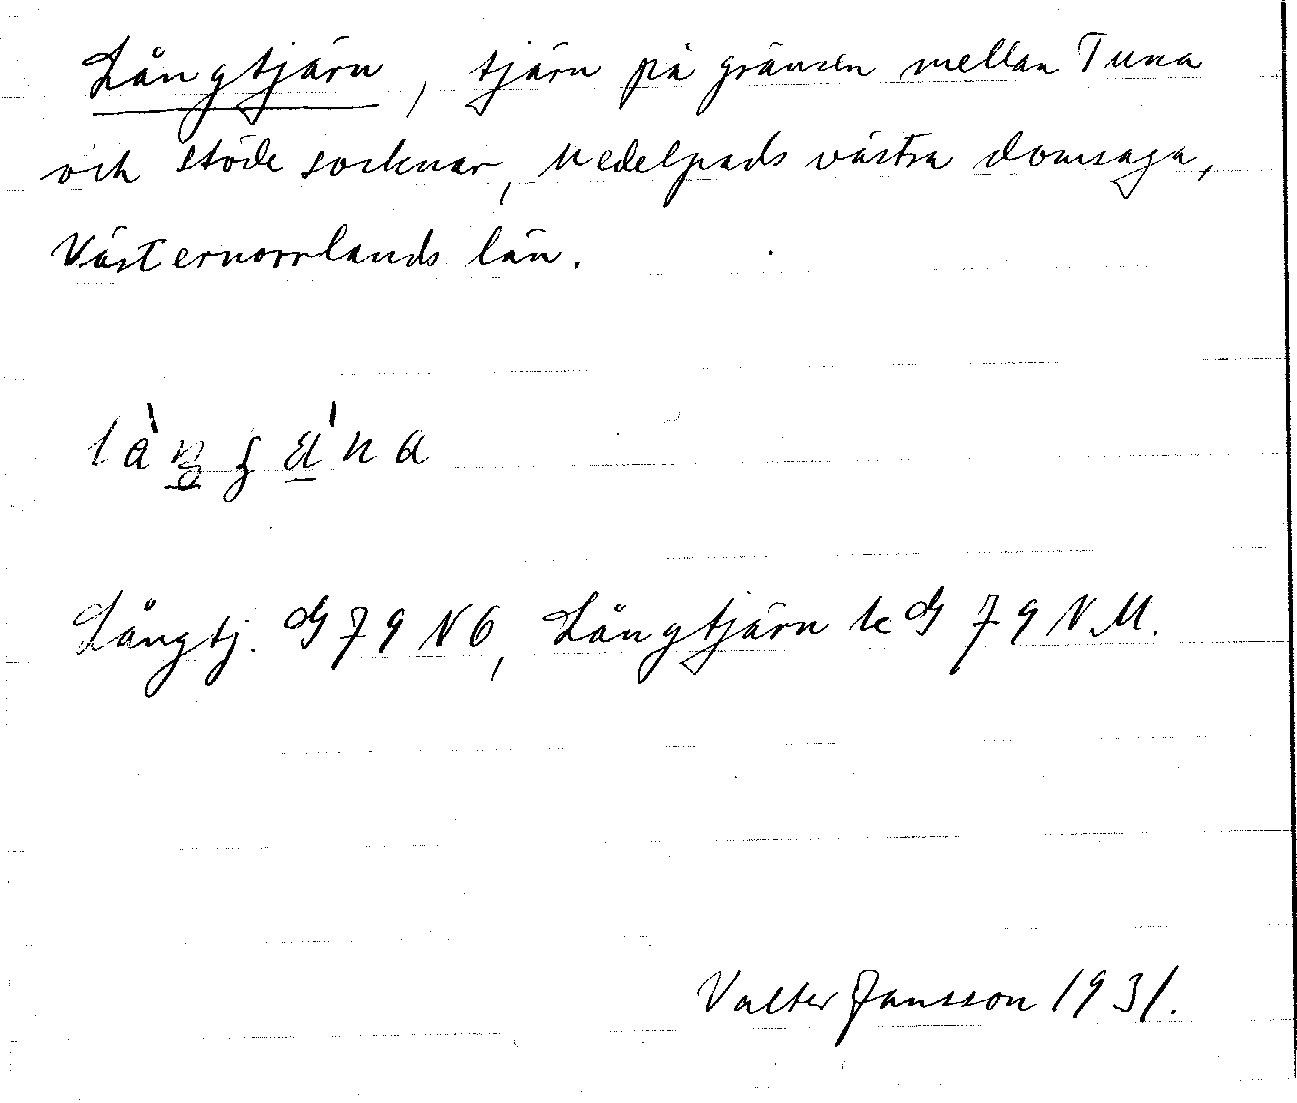 Långtjärn, tjärn på gränsen mellan Tuna
och Stöde socknar, Medelpads västra domsaga,
Västernorrlands län.
Långtj. G 79 NO, Långtjärn k G 79 NM.
Valter Jansson 1931.